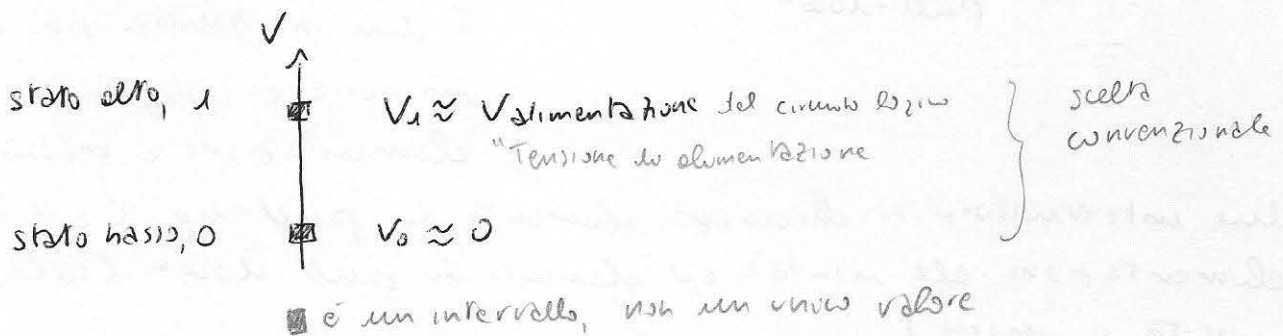 V
stato alto, 1
V₁ ≈ Valimentazione del circuito logico
"Tensione di alimentazione
scelta
convenzionale
stato basso, 0
V₀ ≈ 0
è un intervallo, non un unico valore